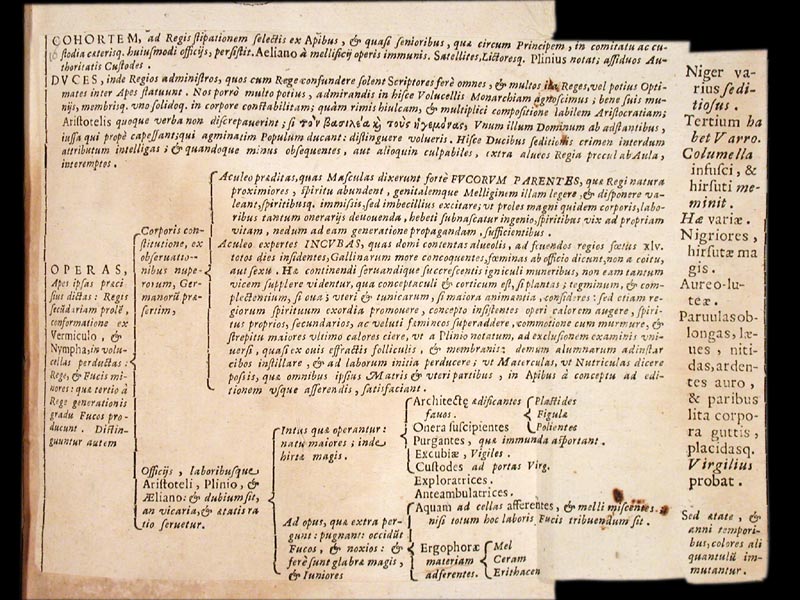 COHORTEM, ad Regis stipationem selectis ex Apibus, & quasi senioribus, quæ circum Principem, in comitatu ac cu-
stodia cæterisq. huiusmodi officijs, persistit. Aeliano à mellificij operis immunis. Satellites, Lictoresq. Plinius notat; assiduos Au-
thoritatis Custodes.
DVCES, inde Regios administros, quos cum Rege confundere solent Scriptores ferè omnes, & multos illa Reges, vel potius Opti-
mates inter Apes statuunt. Nos porrò multo potius, admirandis in hisce Volucellis Monarchiam agnoscimus; bene suis mu-
nijs, membrisq. vno solidoq. in corpore constabilitam; quàm rimis hiulcam, & multiplici compositione labilem Aristocratiam;
Aristotelis quoque verba non discrepauerint; si τὸν βασιλέα κ̀ τοὺς ἡγεμόνας, Vnum illum Dominum ab adstantibus,
iussa qui propè capessant; qui agminatim Populum ducant: distinguere volueris. Hisce Ducibus seditionis crimen interdum
attributum intelligas; & quandoque minus obsequentes, aut alioquin culpabiles, extra alueos Regia procul ab Aula,
interemptos.
OPERAS,
Apes ipsas præci
sius dictas: Regis
secūdariam prolē,
conformatione ex
Vermiculo, &
Nympha, in volu-
cellas perductas:
Rege, & Fucis mi-
nores: quæ tertio à
Rege generationis
gradu Fucos pro-
ducunt. Distin-
guuntur autem
Corporis con-
stitutione, ex
obseruatio-
nibus nupe-
rorum, Ger-
manorū præ-
sertim,
Aculeo præditas, quas Masculas dixerunt fortè FVCORVM PARENTES, quæ Regi natura
proximiores, spiritu abundent, genitalemque Melliginem illam legere, & disponere va-
leant, spiritibusq. immissis, sed imbecillius excitare; vt proles magni quidem corporis, labo-
ribus tantum onerarijs deuouenda, hebeti subnascatur ingenio, spiritibus vix ad propriam
vitam, nedum ad eam generatione propagandam, sufficientibus.
Aculeo expertes INCVBAS, quas domi contentas alueolis, ad fouendos regios fœtus xlv.
totos dies insidentes, Gallinarum more concoquentes, fœminas ab officio dicunt, non a coitu,
aut sexu. Hæ continendi seruandique succrescentis igniculi muneribus, non eam tantum
vicem supplere videntur, qua conceptaculi & corticum est, si plantas; tegminum, & com-
plectentium, si oua; vteri & tunicarum, si maiora animantia, consideres: sed etiam re-
giorum spirituum exordia promouere, concepto insistentes operi calorem augere, spiri-
tus proprios, secundarios, ac veluti famineos superaddere, commotione cum murmure, &
strepitu maiores vltimo calores ciere, vt a Plinio notatum, ad exclusionem examinis vni-
uersi, quasi ex ouis effractis folliculis, & membranis: demum alumnarum adinstar
cibos instillare, & ad laborum initia perducere; vt Materculas, vt Nutriculas dicere
possis, quæ omnibus ipsius Matris & vteri partibus, in Apibus à conceptu ad edi-
tionem vsque asserendis, satisfaciant.
Officijs, laboribusque
Aristoteli, Plinio, &
Æliano: & dubium sit,
an vicaria, & ætatis ra
tio seruetur.
Intus quæ operantur:
natu maiores; inde
hirtæ magis.
Architectę ædificantes
fauos.
Plastides
Figulæ
Polientes
Onera suscipientes
Purgantes, quæ immunda asportant.
Excubiæ, Vigiles.
Custodes ad portas Virg.
Ad opus, quæ extra per-
gunt: pugnant: occidūt
Fucos, & noxios: &
ferè sunt glabræ magis,
& Iuniores
Exploratrices.
Anteambulatrices.
Aquam ad cellas afferentes, & melli miscentes.
nisi totum hoc laboris Fucis tribuendum sit.
Ergophoræ
materiam
adferentes.
Mel
Ceram
Erithacen
Niger va-
rius sedi-
tiosus.
Tertium ha
bet Varro.
Columella
infusci, &
hirsuti me-
minit.
Hæ variæ.
Nigriores,
hirsutæ ma
gis.
Aureo-lu-
teæ.
Paruulas ob-
longas, læ-
ues, niti-
das, arden-
tes auro,
& paribus
lita corpo-
ra guttis,
placidasq.
Virgilius
probat.
Sed ætate, &
anni tempori-
bus, colores ali
quantulū im-
mutantur.